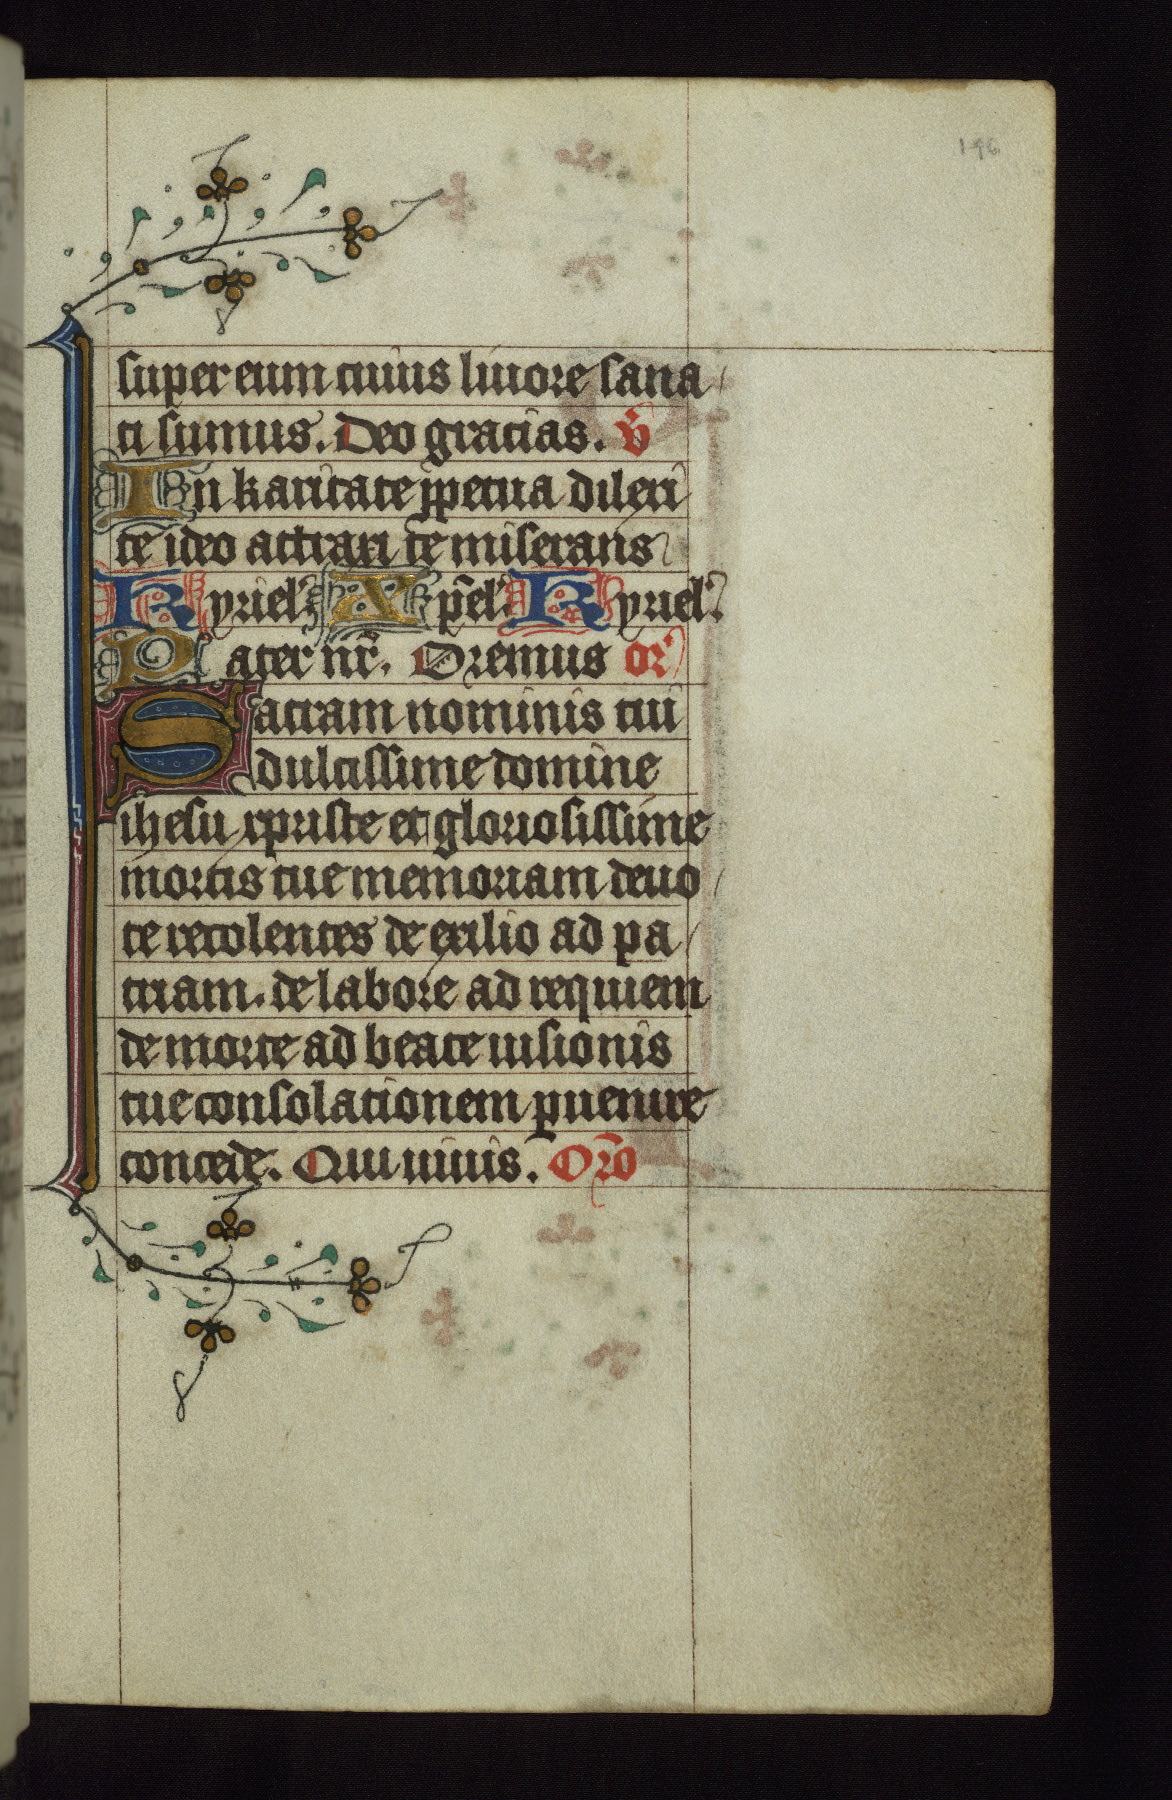 196
super eum cuius liuore sana
ti sumus. Deo gracias. v̄
In karitate ꝑpetua dilexi
te ideo attraxi te miserans
Kyriel’. Xp̄el’. Kyriel’.
Pater nr̄. Oremus or’
Sacram nominis tui
dulcissime domine
ihesu xpriste et gloriosissime
mortis tue memoriam deuo
te recolentes de exilio ad pa
triam. de labore ad requiem
de morte ad beate uisionis
tue consolationem ꝑuenire
concede. Qui uiuis. Oro̅